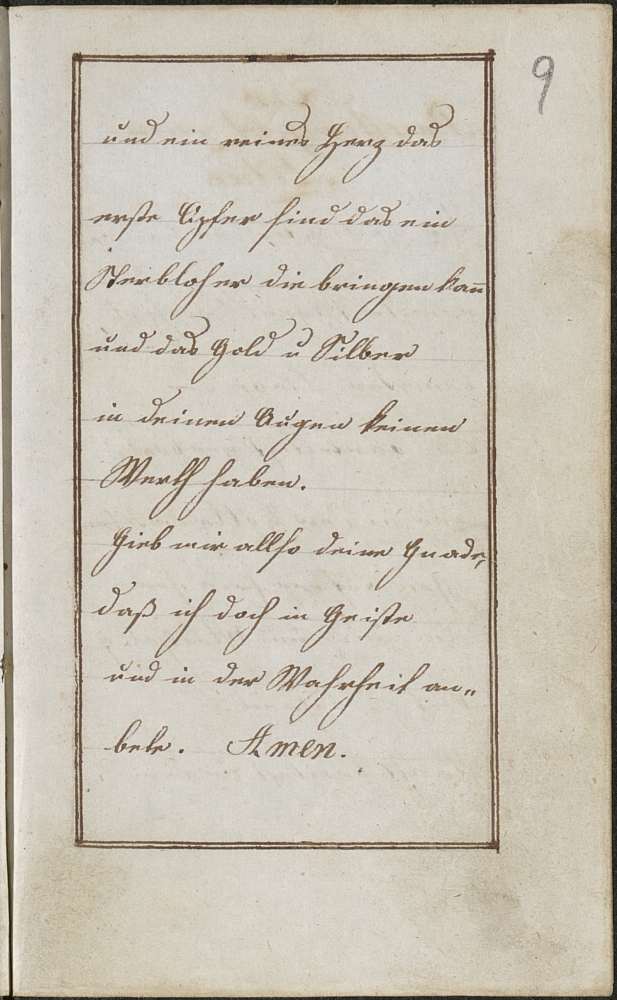 9
und ein reines Herz das
erste Opfer sind das ein
Sterblicher dir bringen kan̅
und das Gold u Silber
in deinen Augen keinen
Werth haben.
Gieb mir allso deine Gnade,
daß ich doch in Geiste
und in der Wahrheit an„
bete. Amen.